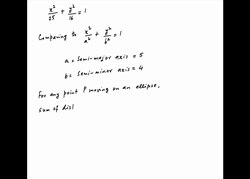 x²/25 + y²/16 = 1
Comparing to x²/a² + y²/b² = 1
a = semi-major axis = 5
b = semi-minor axis = 4
For any point P moving on an ellipse,
sum of dist